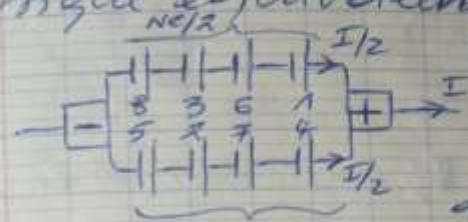 Nc/2
I/2
8 3 6 1
I
- +
5 2 7 4
I/2